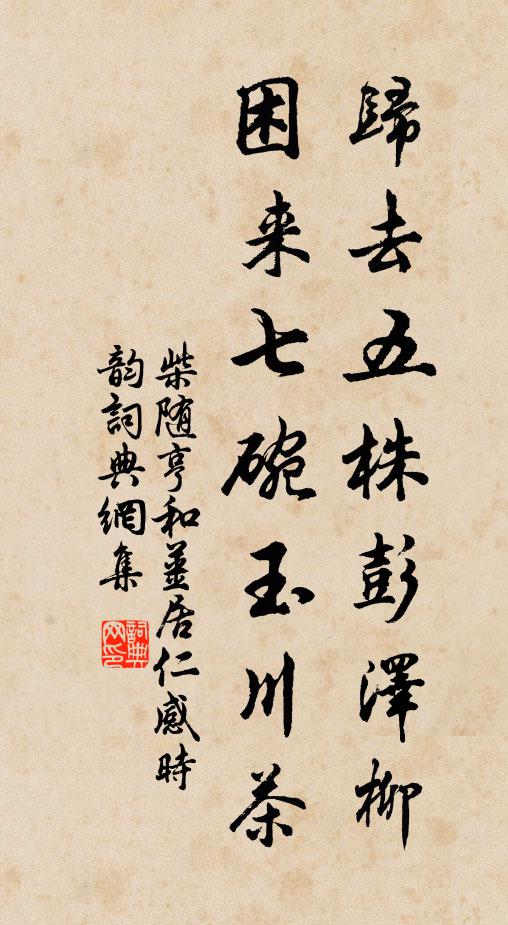 歸去五株彭澤柳
困来七碗玉川茶
柴随亨和姜居仁感時
韵詞典網集
詞典网印